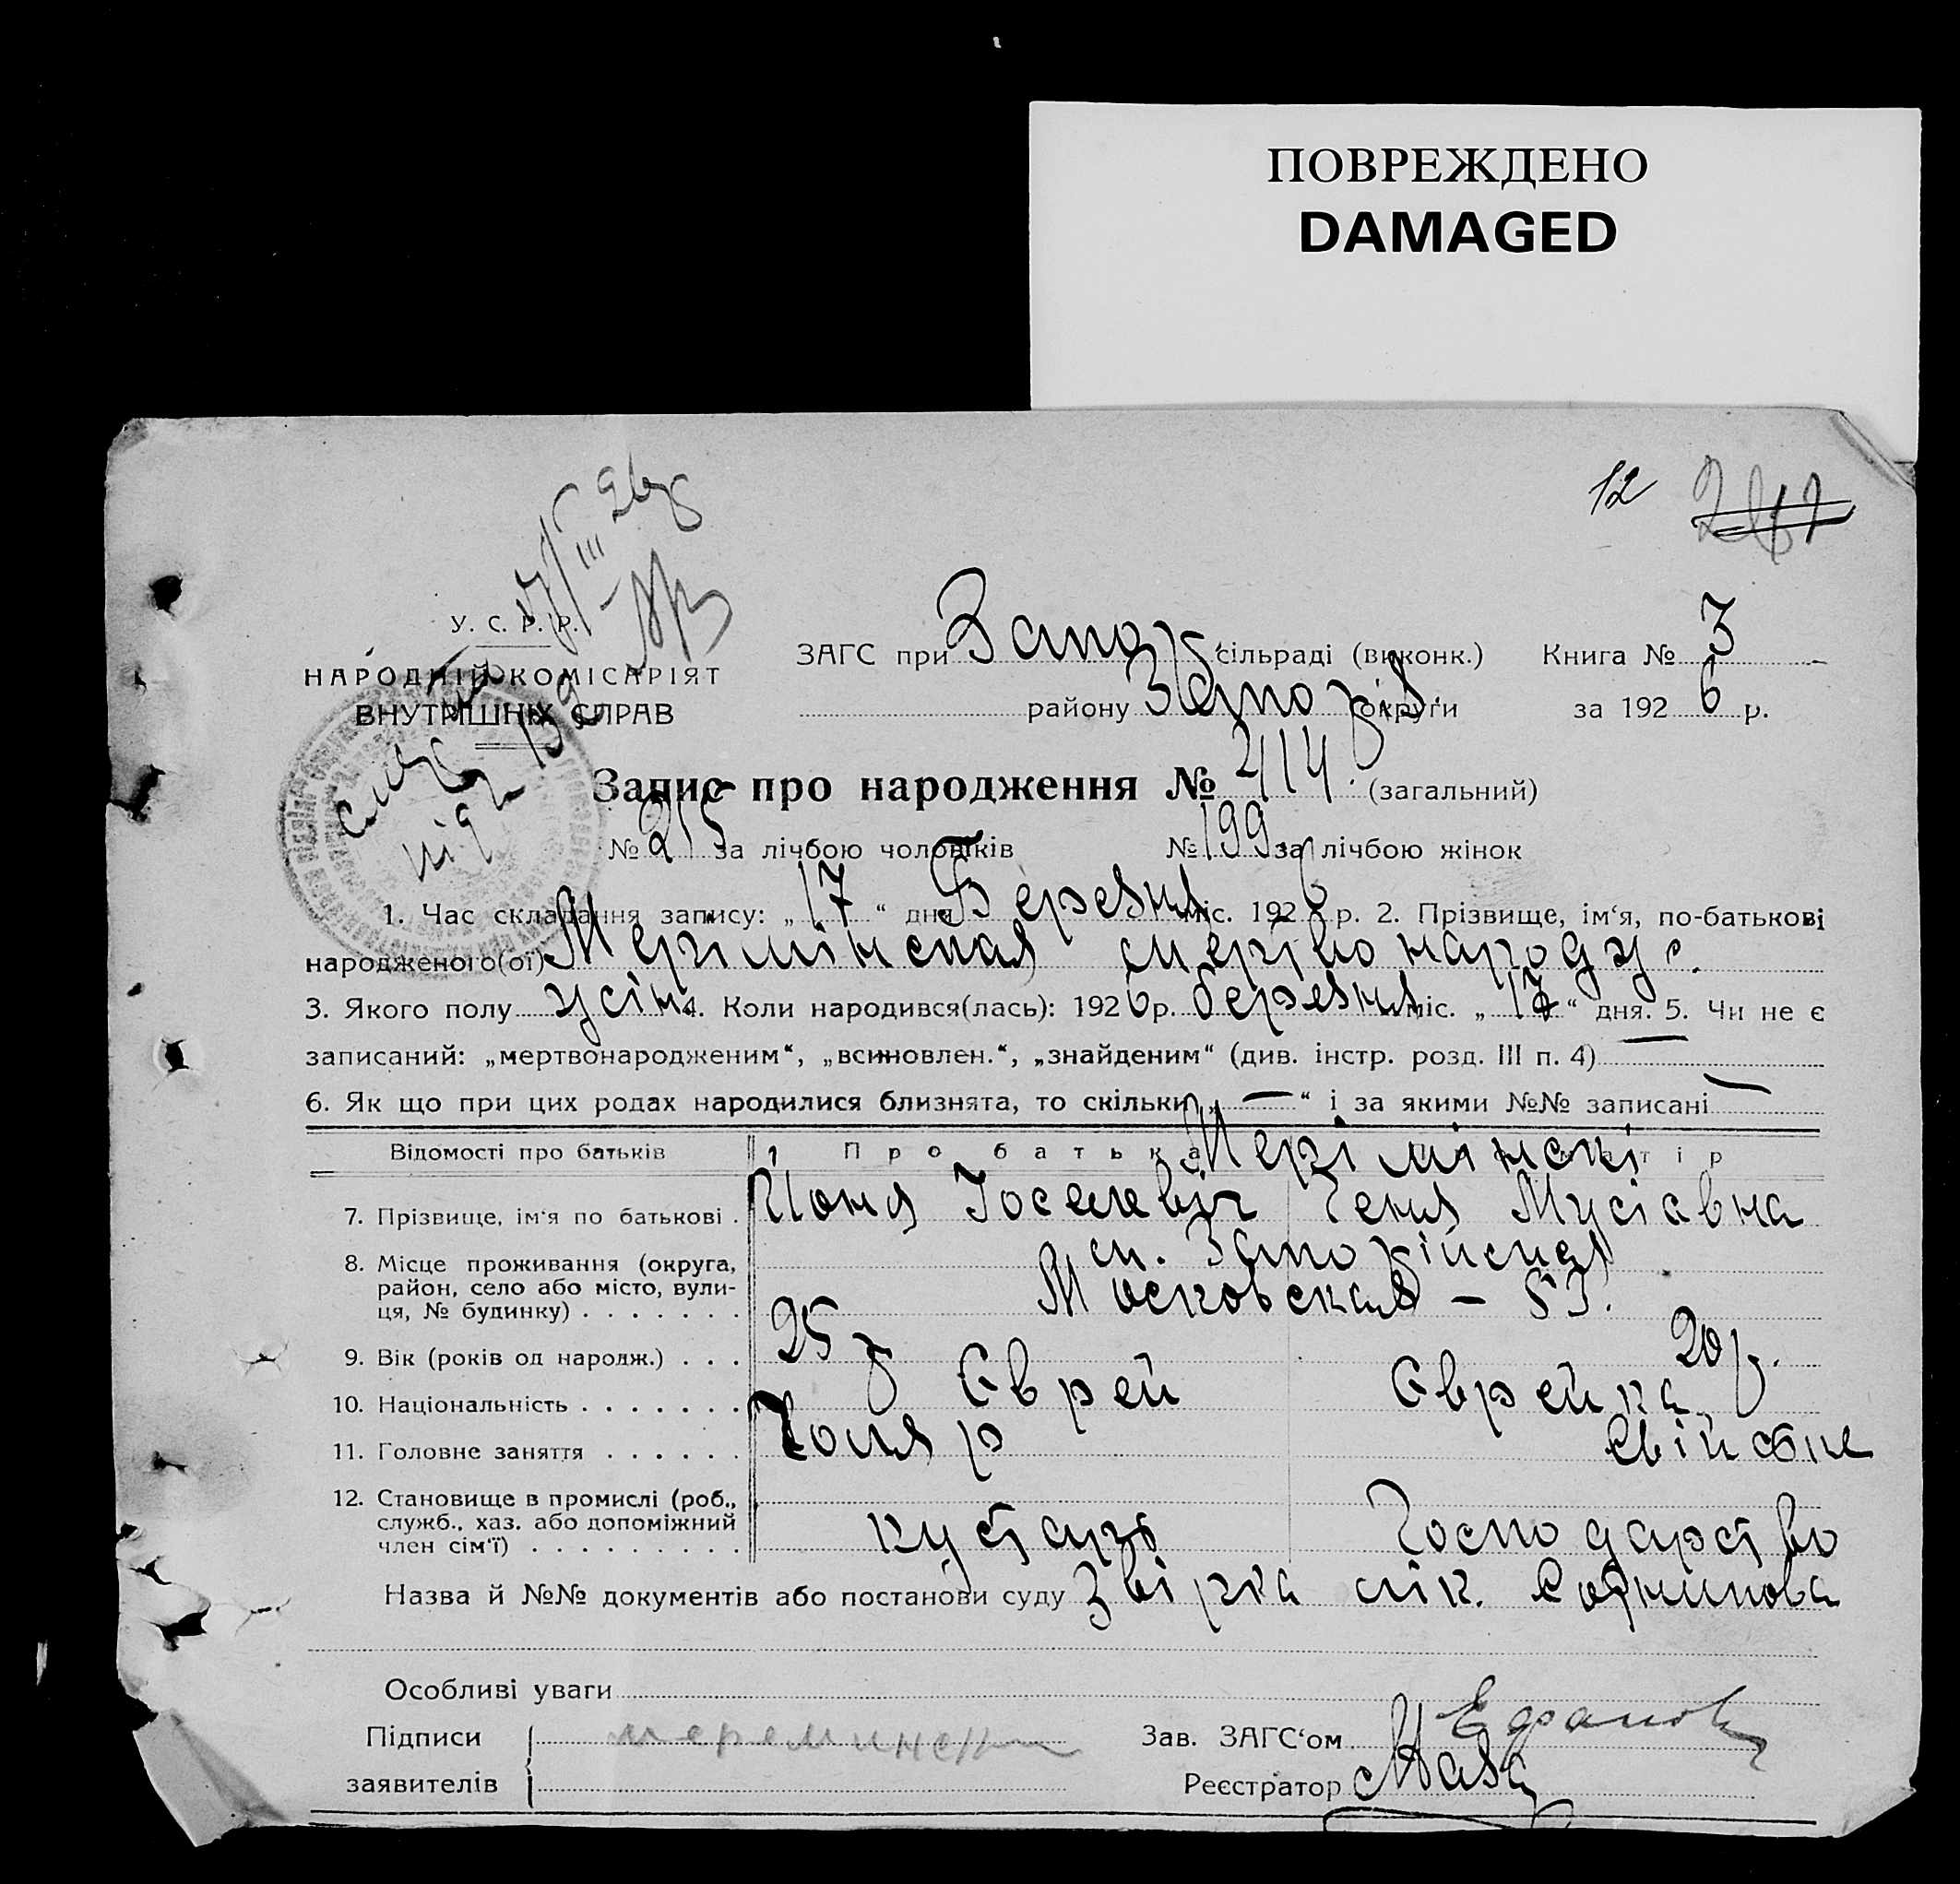 ПОВРЕЖДЕНО
DAMAGED
12 247
У. С. Р. Р.
НАРОДНІЙ КОМІСАРІЯТ
ВНУТРІШНІХ СПРАВ
ЗАГС при Запор. сільраді (виконк.) Книга № 3
району Запоріз. округи за 1926 р.
Запис про народження № 414. (загальний)
№ 215 за лічбою чоловіків № 199 за лічбою жінок
1. Час складання запису: „17“ дня Березня міс. 1926 р. 2. Прізвище, ім‘я, по-батькові
народженого(ої) Мерімінская мертвонародж.
3. Якого полу 4. Коли народився(лась): 1926 р. березня міс. „17“ дня. 5. Чи не є
записаний: „мертвонародженим“, „всиновлен.“, „знайденим“ (див. інстр. розд. III п. 4) —
6. Як що при цих родах народилися близнята, то скільки „—“ і за якими №№ записані —
Відомості про батьків Про батька Мерімінскі тір
7. Прізвище, ім‘я по батькові . Йоня Іоселевіч Геня Мусіавна
8. Місце проживання (округа, район, село або місто, вули- ця, № будинку) . . . . . . . м. Запоріжжя
Московская –
9. Вік (років од народж.) . . . 25 р 20 р.
10. Національність . . . . . . . Єврей Єврейка
11. Головне заняття . . . . . . Столяр Свійське
12. Становище в промислі (роб., служб., хаз. або допоміжний член сім‘ї) . . . . . . . . . кустарь Господарство
Назва й №№ документів або постанови суду лік.
Особливі уваги
Підписи меремински Зав. ЗАГС‘ом
заявителів Реєстратор